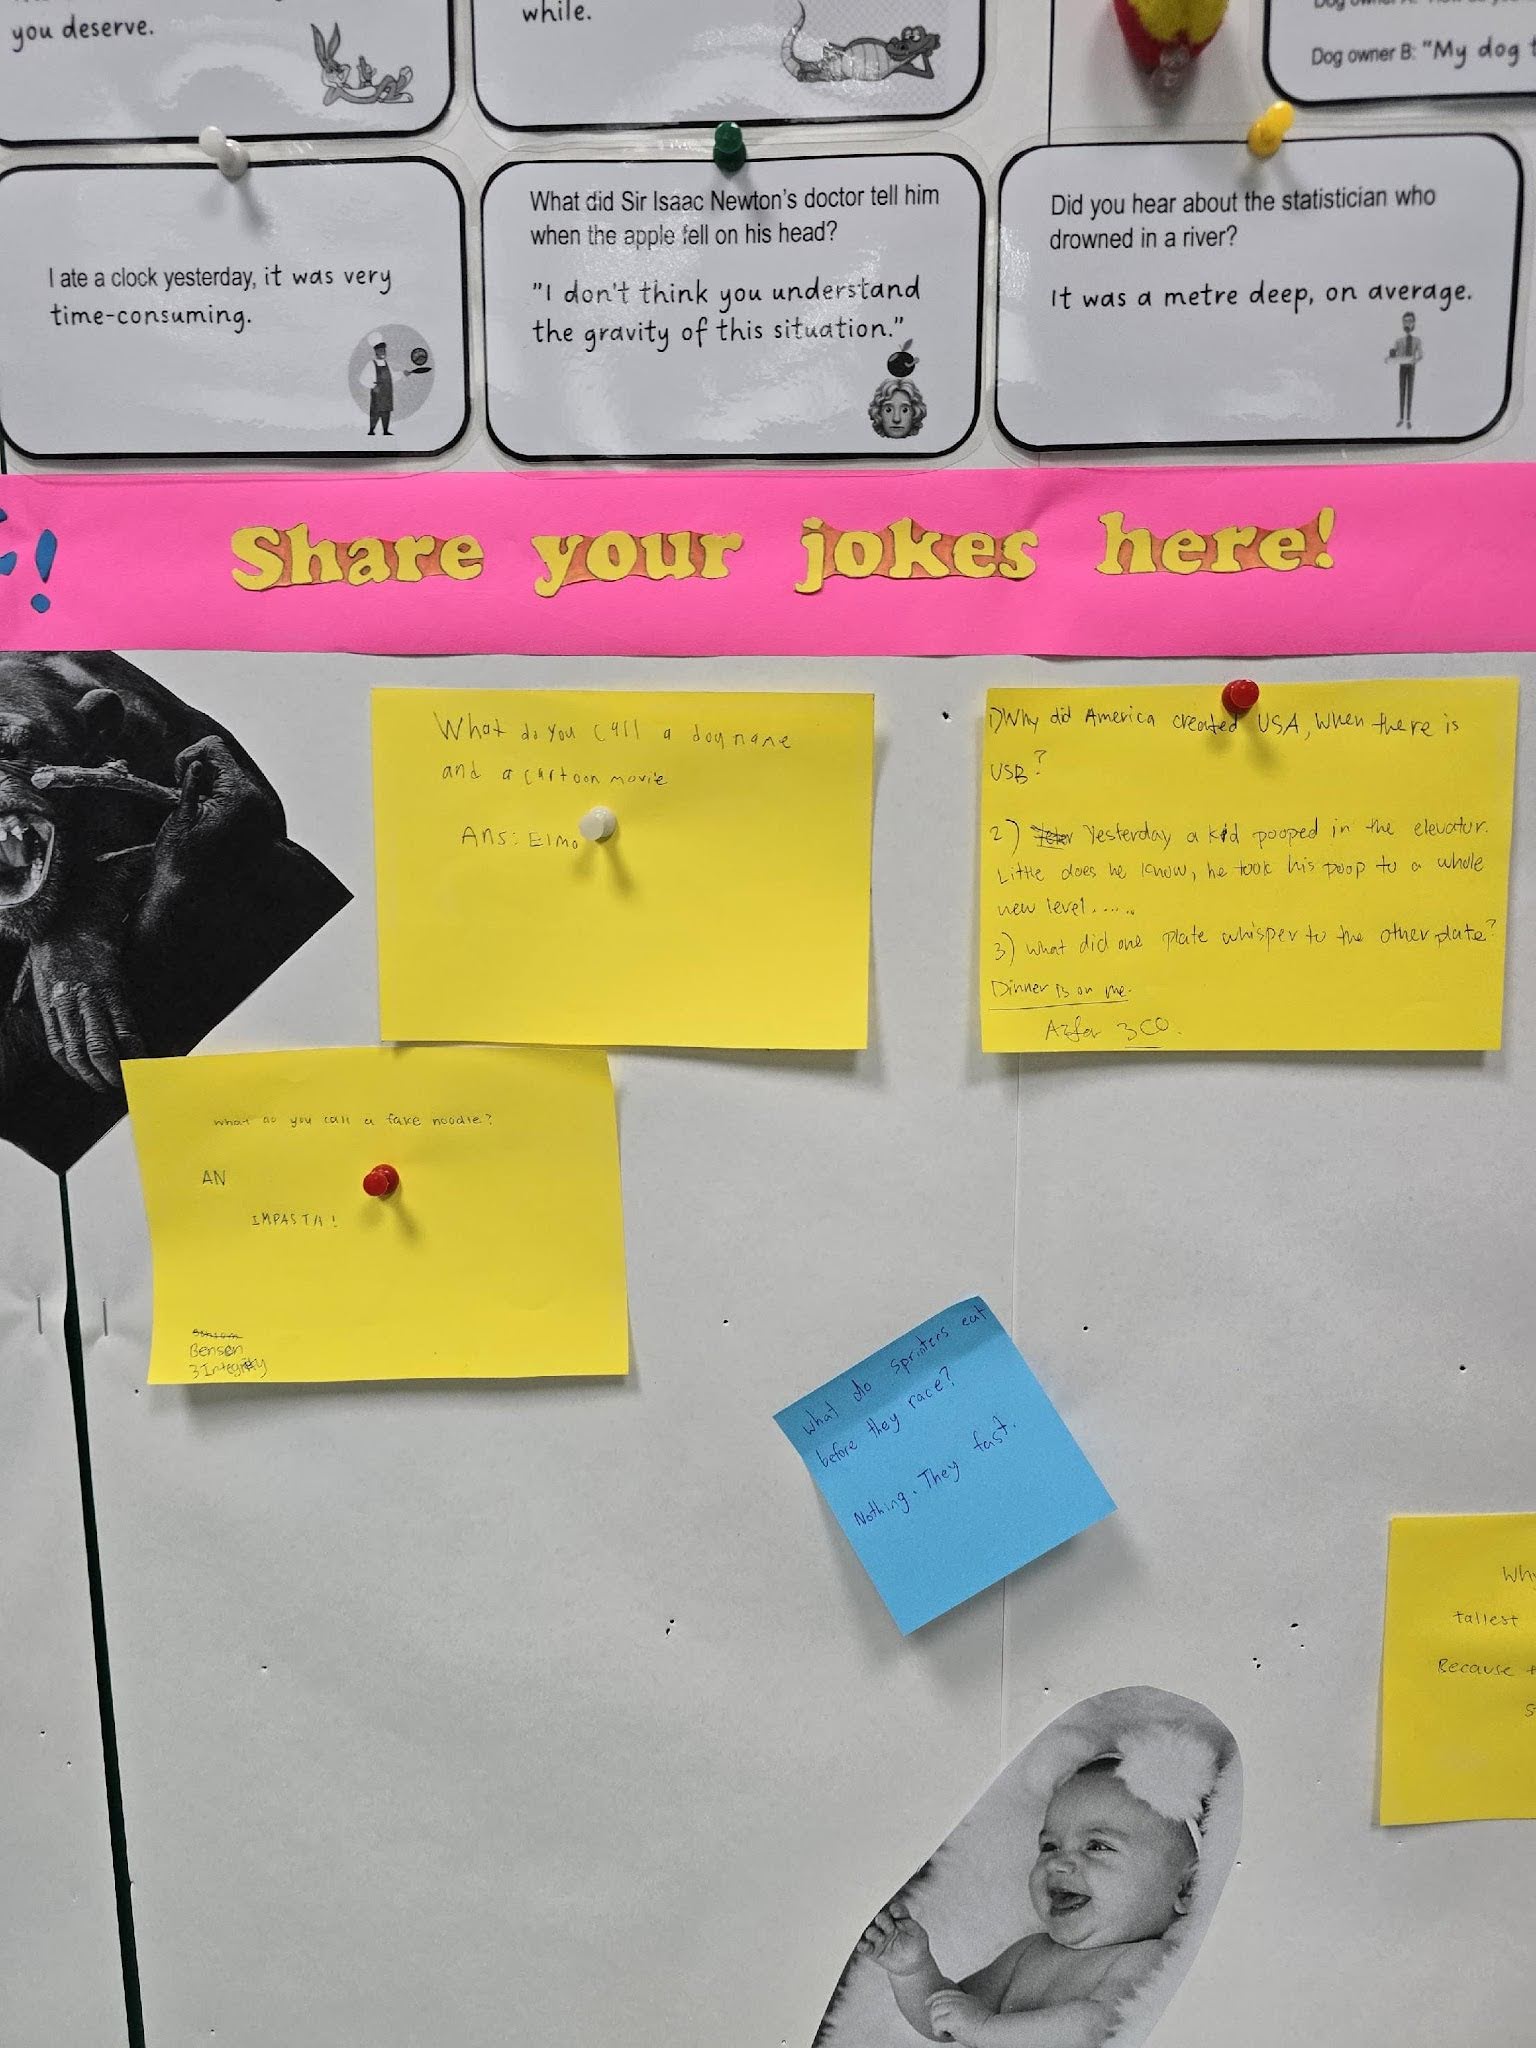 you deserve.
while.
Dog owner B: "My dog
I ate a clock yesterday, it was very
time-consuming.
What did Sir Isaac Newton's doctor tell him
when the apple fell on his head?
"I don't think you understand
the gravity of this situation."
Did you hear about the statistician who
drowned in a river?
It was a metre deep, on average.
Share your jokes here!
What do you call a dog name
and a cartoon movie
Ans: Elmo
1) Why did America created USA, When there is
USB?
2) Yesterday a kid pooped in the elevator.
Little does he know, he took his poop to a whole
new level.....
3) What did one plate whisper to the other plate?
Dinner is on me.
3CO.
What do you call a fake noodle?
AN
IMPASTA!
Benson
3Integrity
What do Sprinters eat
before they race?
Nothing. They fast.
Why
tallest
Because